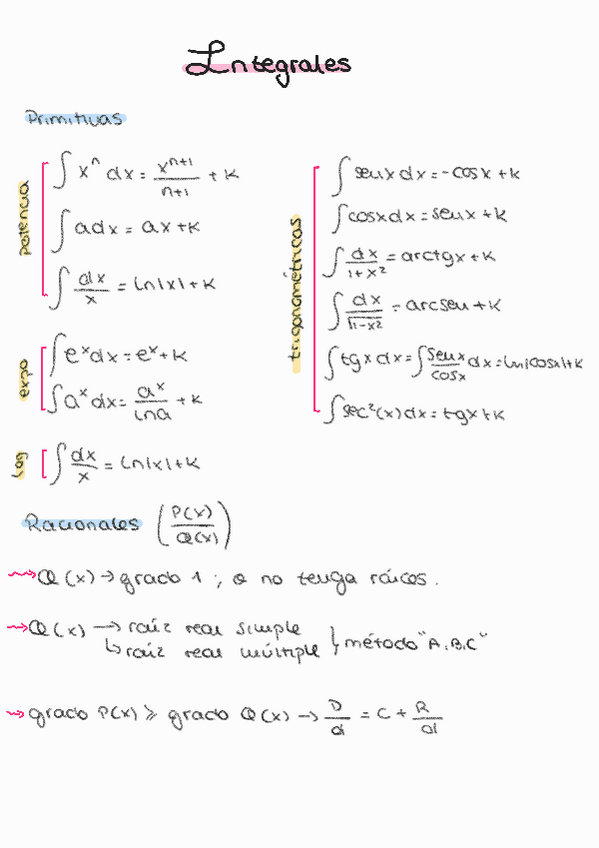 Integrales
Primitivas
potencia
∫ xⁿ dx = xⁿ⁺¹/n+1 + K
∫ a dx = ax + K
∫ dx/x = ln|x| + K
expo
∫ eˣ dx = eˣ + K
∫ aˣ dx = aˣ/lna + K
log
∫ dx/x = ln|x| + K
trigonométricas
∫ senx dx = -cosx + K
∫ cosx dx = senx + K
∫ dx/1+x² = arctgx + K
∫ dx/√1-x² = arcsen + K
∫ tgx dx = ∫ senx/cosx dx = ln|cosx| + K
∫ sec²(x) dx = tgx + K
Racionales (P(x)/Q(x))
Q(x) → grado 1 ; o no tenga raíces.
Q(x) → raíz real simple
↳ raíz real múltiple } método "A,B,C"
grado P(x) ⩾ grado Q(x) → D/d = C + R/d